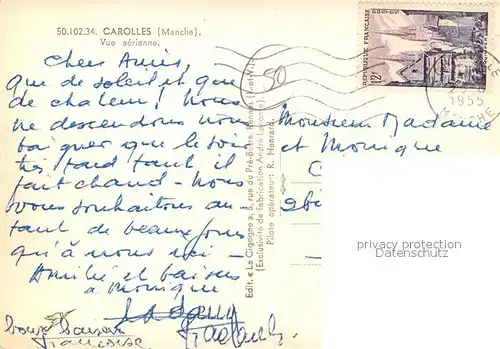 50.102.34. CAROLLES (Manche).
Vue aérienne.
Chers Amis,
que de soleil et que
de chaleur! Nous
ne descendons nous
baigner que le soir
très tard tant il
fait chaud - Nous
vous souhaitons au-
tant de beaux jours
qu'à nous ici -
Amitié et baisers
à Monique
bons baisers
Françoise
50
Edit. « La Cigogne », 5, rue du Pré-Botté, Rennes
(Exclusivité de fabrication André Leconte)
Pilote opérateur: R. Henrard.
REPUBLIQUE FRANÇAISE
POSTES
12F
1955
MANCHE
Monsieur Madame
et Monique
privacy protection
Datenschutz